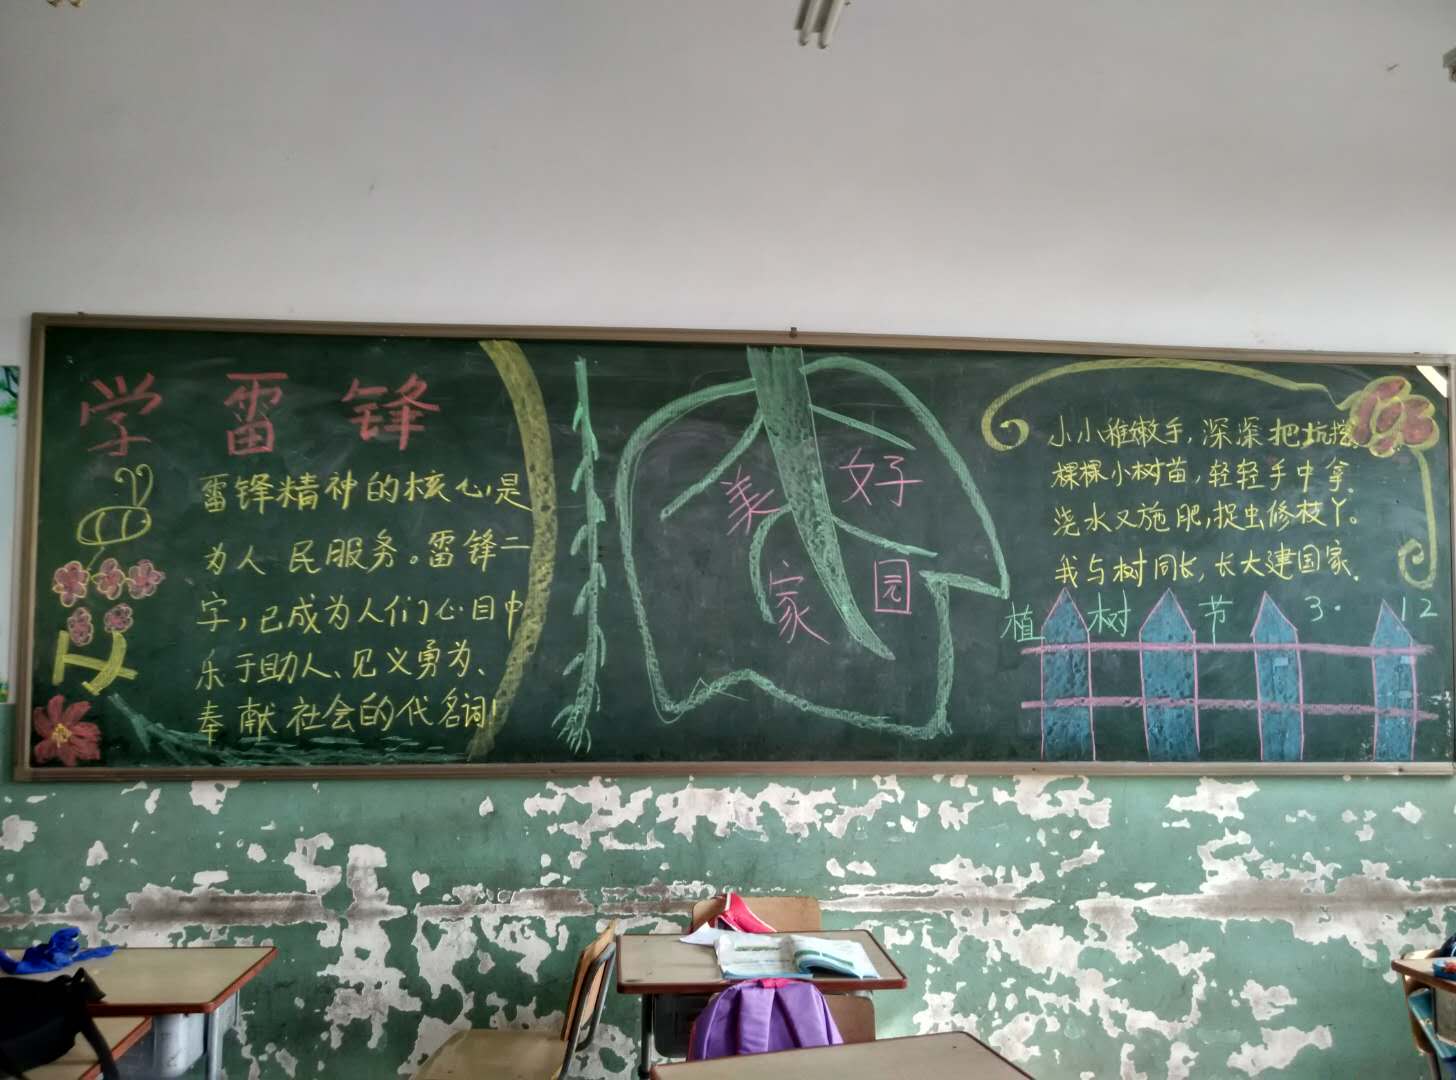 学雷锋
雷锋精神的核心是
为人民服务。雷锋二
字,已成为人们心目中
乐于助人、见义勇为、
奉献社会的代名词!
美好
家园
小小稚嫩手,深深把坑挖
棵棵小树苗,轻轻手中拿
浇水又施肥,捉虫修枝丫。
我与树同长,长大建国家.
植树节3·12